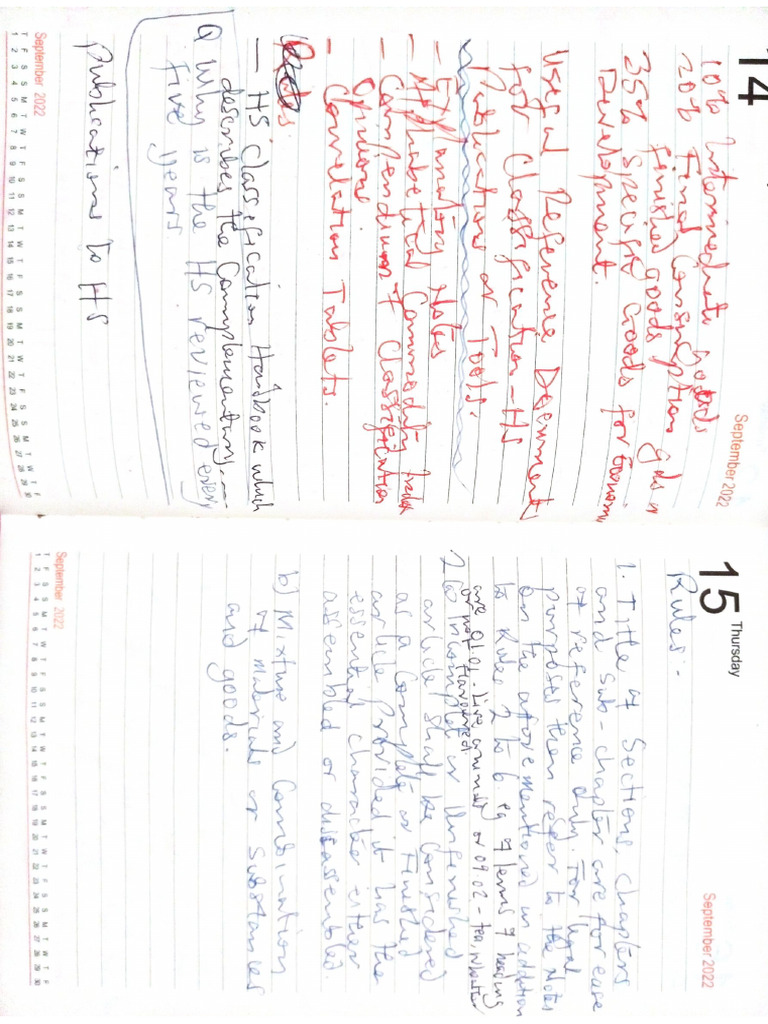 14
September 2022
10% Intermediate Goods
20% Final Consumption gds or
finished goods
35% Specific Goods for Economic
Development.
Useful Reference Documents
for Classification - HS
Publications or Tools.
- Explanatory Notes
- Alphabetical Commodity Index
- Compendium of Classification
Opinions
- Correlation Tablets.
- HS Classification Handbook which
describes the Complementary
Q Why is the HS reviewed every
five years
Publications to HS
September 2022
T F S S M T W T F S S M T W T F S S M T W T F S S M T W T F
1 2 3 4 5 6 7 8 9 10 11 12 13 14 15 16 17 18 19 20 21 22 23 24 25 26 27 28 29 30
15 Thursday
September 2022
Rules:-
1. Title of Sections, chapters
and sub-chapter are for ease
of reference only. For legal
purposes then refer to the Notes
on the aforementioned in addition
to Rules 2 to 6. eg of terms of heading
are 01.01. Live animals or 09.02 - tea, whether
or not flavoured.
2(a) Incomplete or Unfinished
article shall be considered
as a Complete or Finished
article provided it has the
essential character either
assembled or disassembled.
b) Mixture and Combination
of materials or substances
and goods.
September 2022
T F S S M T W T F S S M T W T F S S M T W T F S S M T W T F
1 2 3 4 5 6 7 8 9 10 11 12 13 14 15 16 17 18 19 20 21 22 23 24 25 26 27 28 29 30